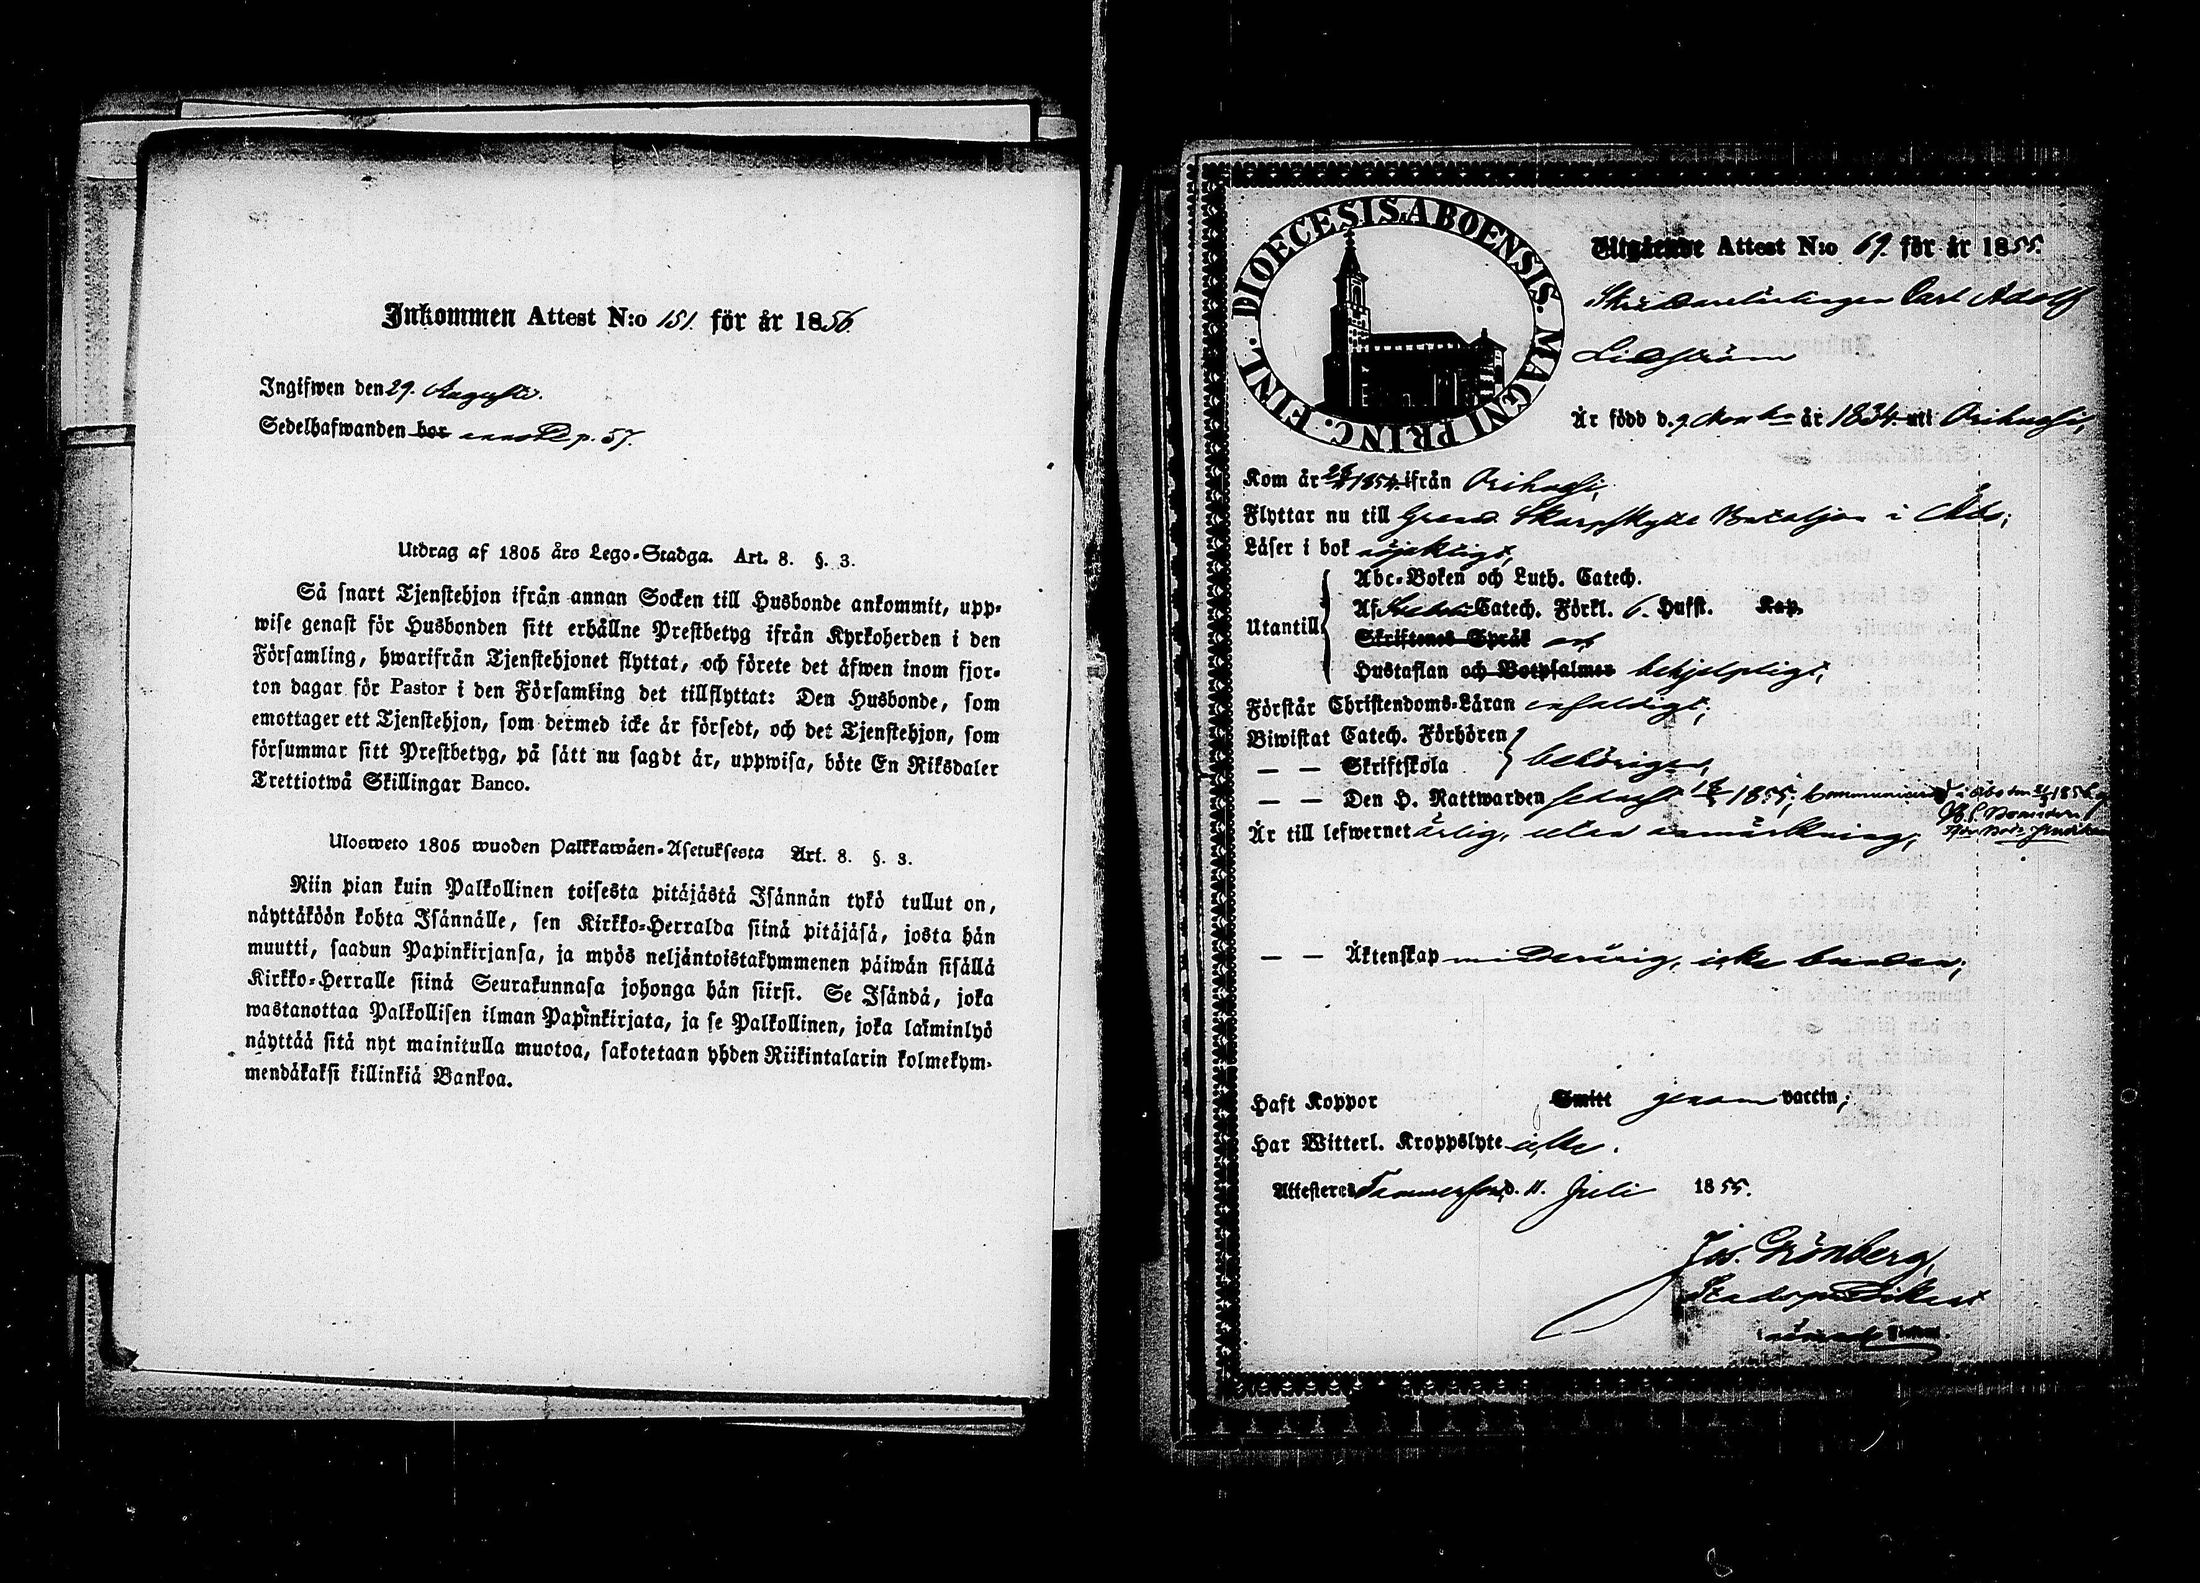 Inkommen Attest N:o 151. för år 1856
Ingifwen den 29. Augusti.
Sedelhafwanden bor annoterad p. 57.
Utdrag af 1805 års Lego-Stadga. Art. 8. §. 3.
Så snart Tjenstehjon ifrån annan Socken till Husbonde ankommit, upp-
wise genast för Husbonden sitt erhållne Prestbetyg ifrån Kyrkoherden i den
Församling, hwarifrån Tjenstehjonet flyttat, och förete det äfwen inom fjor-
ton dagar för Pastor i den Församling det tillflyttat: Den Husbonde, som
emottager ett Tjenstehjon, som dermed icke är försedt, och det Tjenstehjon, som
försummar sitt Prestbetyg, på sätt nu sagdt är, uppwisa, böte En Riksdaler
Trettiotwå Skillingar Banco.
Ulosweto 1805 wuoden Palkkawäen-Asetuksesta Art. 8. §. 3.
Niin pian kuin Palkollinen toisesta pitäjästä Isännän tykö tullut on,
näyttäköön kohta Isännälle, sen Kirkko-Herralda siinä pitäjäsä, josta hän
muutti, saadun Papinkirjansa, ja myös neljäntoistakymmenen päiwän sisällä
Kirkko-Herralle siinä Seurakunnasa johonga hän siirsi. Se Isändä, joka
wastanottaa Palkollisen ilman Papinkirjata, ja se Palkollinen, joka laiminlyö
näyttää sitä nyt mainitulla muotoa, sakotetaan yhden Riikintalarin kolmekym-
mendäkaksi killinkiä Bankoa.
DIOECESIS ABOENSIS. MAGNI PRINC. FINL.
Utgående Attest N:o 69. för år 1855.
Skräddarelärlingen Carl Adolf
Lidström
Är född d. 9 Nov br år 1834 uti Orihvesi,
Kom år 1854 ifrån Orihvesi,
Flyttar nu till Grenad. Skarpskytte Bataljon i Åbo;
Läser i bok nöjaktigt,
Abc-Boken och Luth. Catech.
Utantill Af Catech. Förkl. 6. Hufst. Kap.
Skriftenes Språk och
Hustaflan och Botpsalmer behjelpligt,
Förstår Christendoms-Läran enfaldigt;
Biwistat Catech. Förhören
— — Skriftskola behörigen,
— — Den H. Nattwarden sednast 1855; communicerat i Åbo den 1856
Är till lefwernet ärlig, utan anmärkning,
— — Äktenskap minderårig, icke bunden;
Haft Koppor Smitt genom vaccin;
Har Witterl. Kroppslyte icke.
Attesteras Tammerfors, d. 11. Juli 1855.
Jos. Grönberg,
Stadspredikant